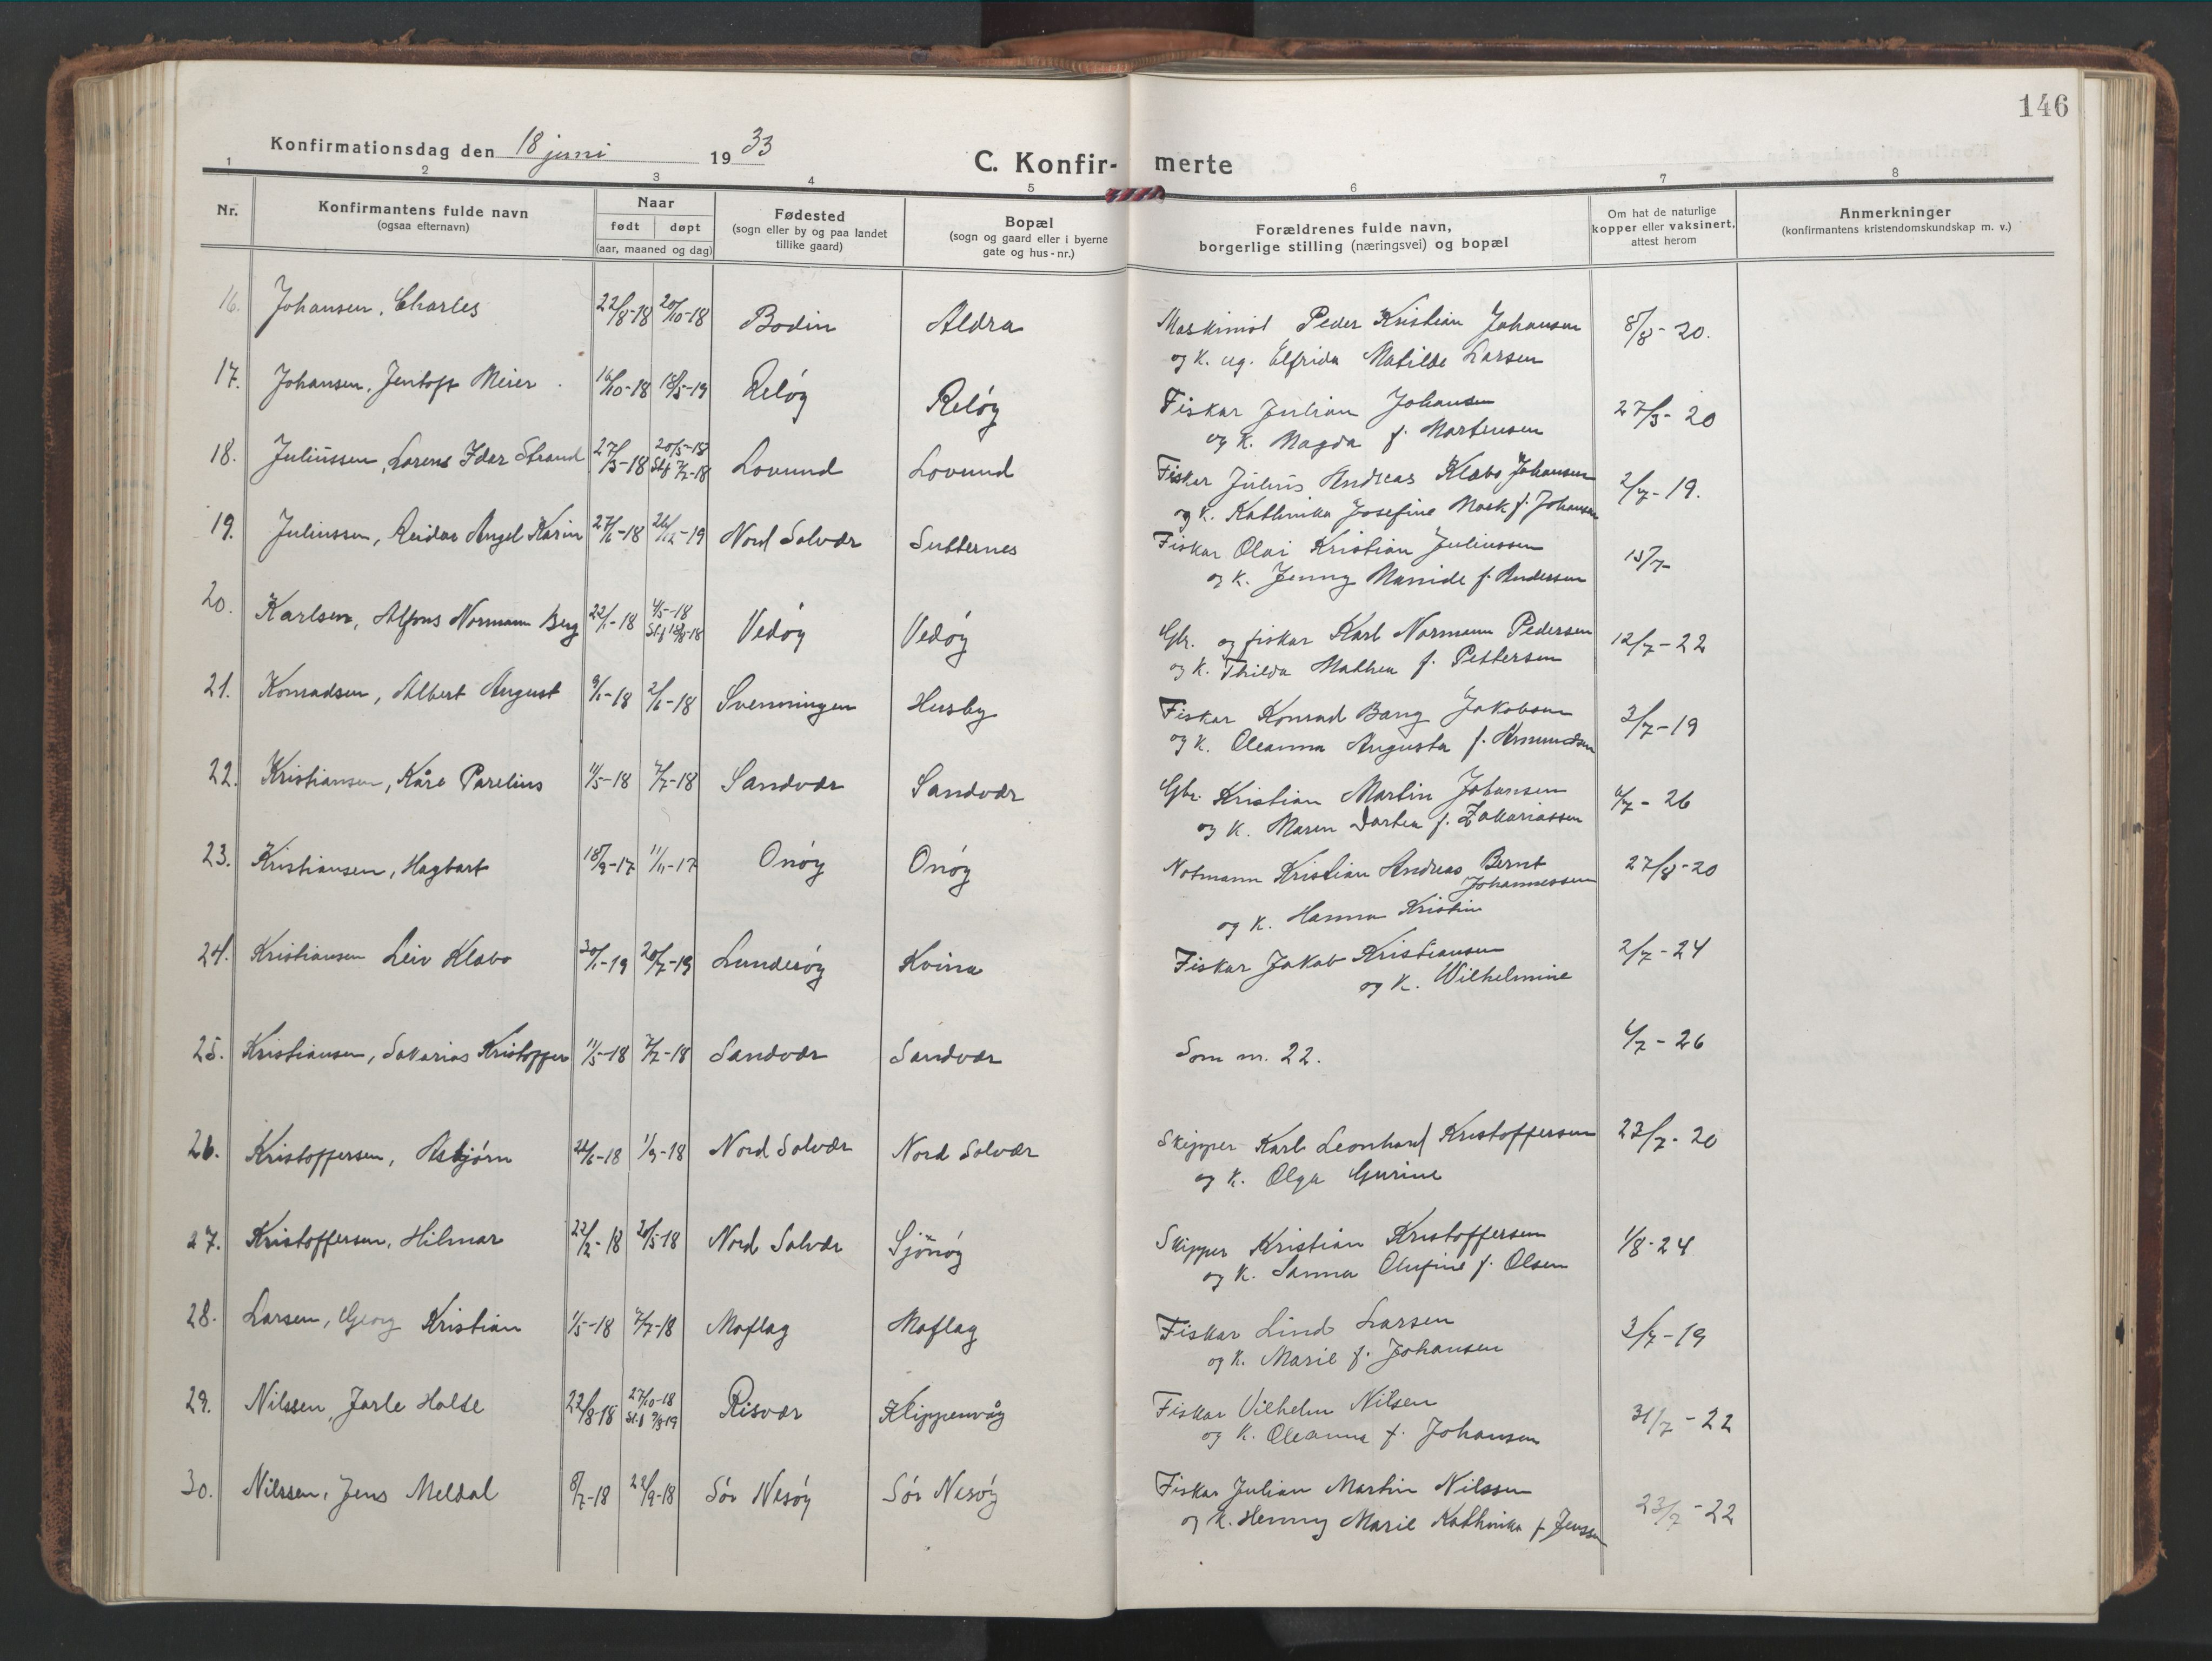 146
Konfirmationsdag den 18 juni 1933
C. Konfirmerte
1 2 3 4 5 6 7 8
Nr.
Konfirmantens fulde navn
(ogsaa efternavn)
Naar
født døpt
(aar, maaned og dag)
Fødested
(sogn eller by og paa landet
tillike gaard)
Bopæl
(sogn og gaard eller i byerne
gate og hus-nr.)
Forældrenes fulde navn,
borgerlige stilling (næringsvei) og bopæl
Om hat de naturlige
kopper eller vaksinert,
attest herom
Anmerkninger
(konfirmantens kristendomskundskap m. v.)
16. Johansen, Charles 22/8-18 20/10-18 Bodin Aldra Maskinist Peder Kristian Johansen 8/8-20.
og K. ug. Elfrida Matilde Larsen
17. Johansen, Jentoft Meier 16/10-18 18/5-19 Reløy Reløy Fiskar Julian Johansen 27/3-20
og K. Magda f. Martensen
18. Juliussen, Lorens Idar Strand 27/3-18 20/5-18 Lovund Lovund Fiskar Julius Andreas Klæbo Johansen 2/7-19.
Stf 7/7-18 og K. Kathinka Josefine Mosk f. Johansen
19. Juliussen, Reidar Angel Karin 27/6-18 26/12-19 Nord Solvær Sutternes Fiskar Olai Kristian Juliussen 15/7-
og K. Jenny Manide f. Andersen
20. Karlsen, Alfons Normann Berg 22/1-18 4/5-18 Vedøy Vedøy Gbr. og fiskar Karl Normann Pedersen 12/7-22
St.f 18/8-18 og K. Thilda Mathea f. Pettersen
21. Konradsen, Albert August 9/1-18 2/6-18 Svenningen Husby Fiskar Konrad Bang Jakobsen 3/7-19
og K. Oleanna Augusta f. Amundsen
22. Kristiansen, Kåre Parelius 11/5-18 7/7-18 Sandvær Sandvær Gbr. Kristian Martin Johansen 6/7-26
og K. Maren Dortea f. Zakariassen
23. Kristiansen, Hagbart 18/9-17 11/11-17 Onøy Onøy Notmann Kristian Andreas Bernt 27/8-20
Johannessen
og K. Hanna Kristin
24. Kristiansen Leiv Klæbo 30/1-19 20/7-19 Lunderøy Kvina Fiskar Jakob Kristiansen 2/7-24
og K. Wilhelmine
25. Kristiansen, Sakarias Kristoffer 11/5-18 7/7-18 Sandvær Sandvær Som nr. 22. 6/7-26
26. Kristoffersen, Asbjørn 22/6-18 1/9-18 Nord Solvær Nord Solvær Skipper Karl Leonhard Kristoffersen 23/7-20
og K. Olga Gurine
27. Kristoffersen, Hilmar 22/2-18 20/5-18 Nord Solvær Sjonøy Skipper Kristian Kristoffersen 1/8-24
og K. Sanna Olufine f. Olsen
28. Larsen, Georg Kristian 1/5-18 7/7-18 Moflag Moflag Fiskar Lind Larsen 3/7-19
og K. Marie f. Johansen
29. Nilssen, Jarle Holte 22/8-18 27/10-18 Risvær Klippenvåg Fiskar Vilhelm Nilsen 31/7-22
St.f 9/3-19 og K. Oleanna f. Johansen
30. Nilssen, Jens Meldal 8/7-18 22/9-18 Sør Nesøy Sør Nesøy Fiskar Julian Martin Nilssen 23/7-22
og K. Henny Marie Kathinka f. Jenssen